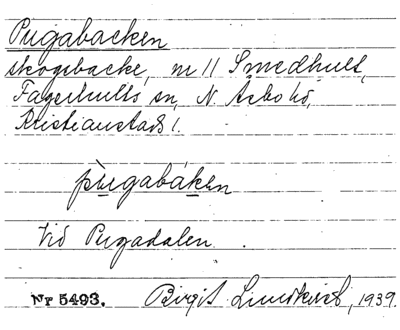 Pugabacken
skogsbacke, m 11 Smedhult,
Fagerhults sn, N. Åsbo hd,
Kristianstads l.
pùgabáken
Vid Pugadalen.
Nr 5493. Birgit Lundkvist, 1939.